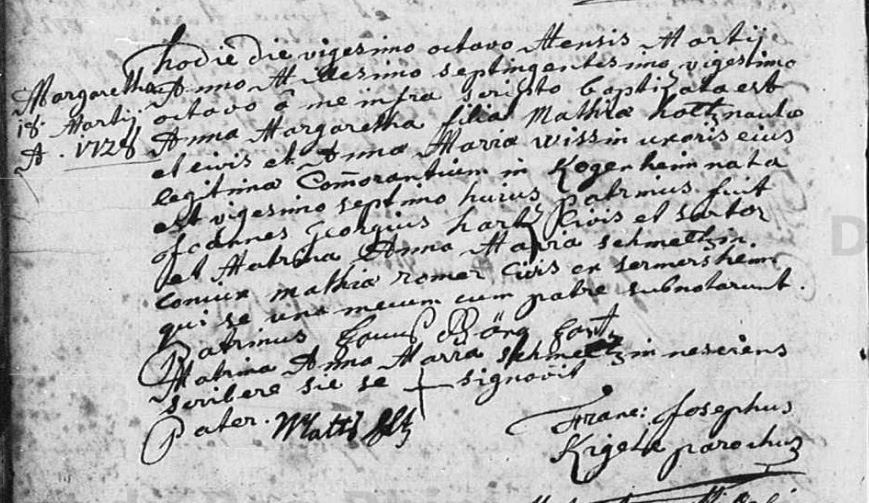 Margaretha
18. Martij
A. 1728
hodie die vigesimo octavo Mensis Martij
Anno Millesimo septingentesimo vigesimo
octavo â me infra scripto baptizata est
Anna Margaretha filia Mathiæ holtz nautæ
et civis et Anna Maria wissin uxoris eius
legitima Com̃orantium in Kogenheim nata
est vigesimo septimo huius Patrinus fuit
Joannes Georgius hartz Civis et sartor
et Matrina Anna Maria schmeltzin
Coniux mathiæ romer Civis ex sermersheim
qui se una mecum cum patre subnotarunt.
Patrinus Görg
Matrina Anna Maria schmeltzin nesciens
scribere sic se + signavit
Pater. Matis
Franc: Josephus
parochus